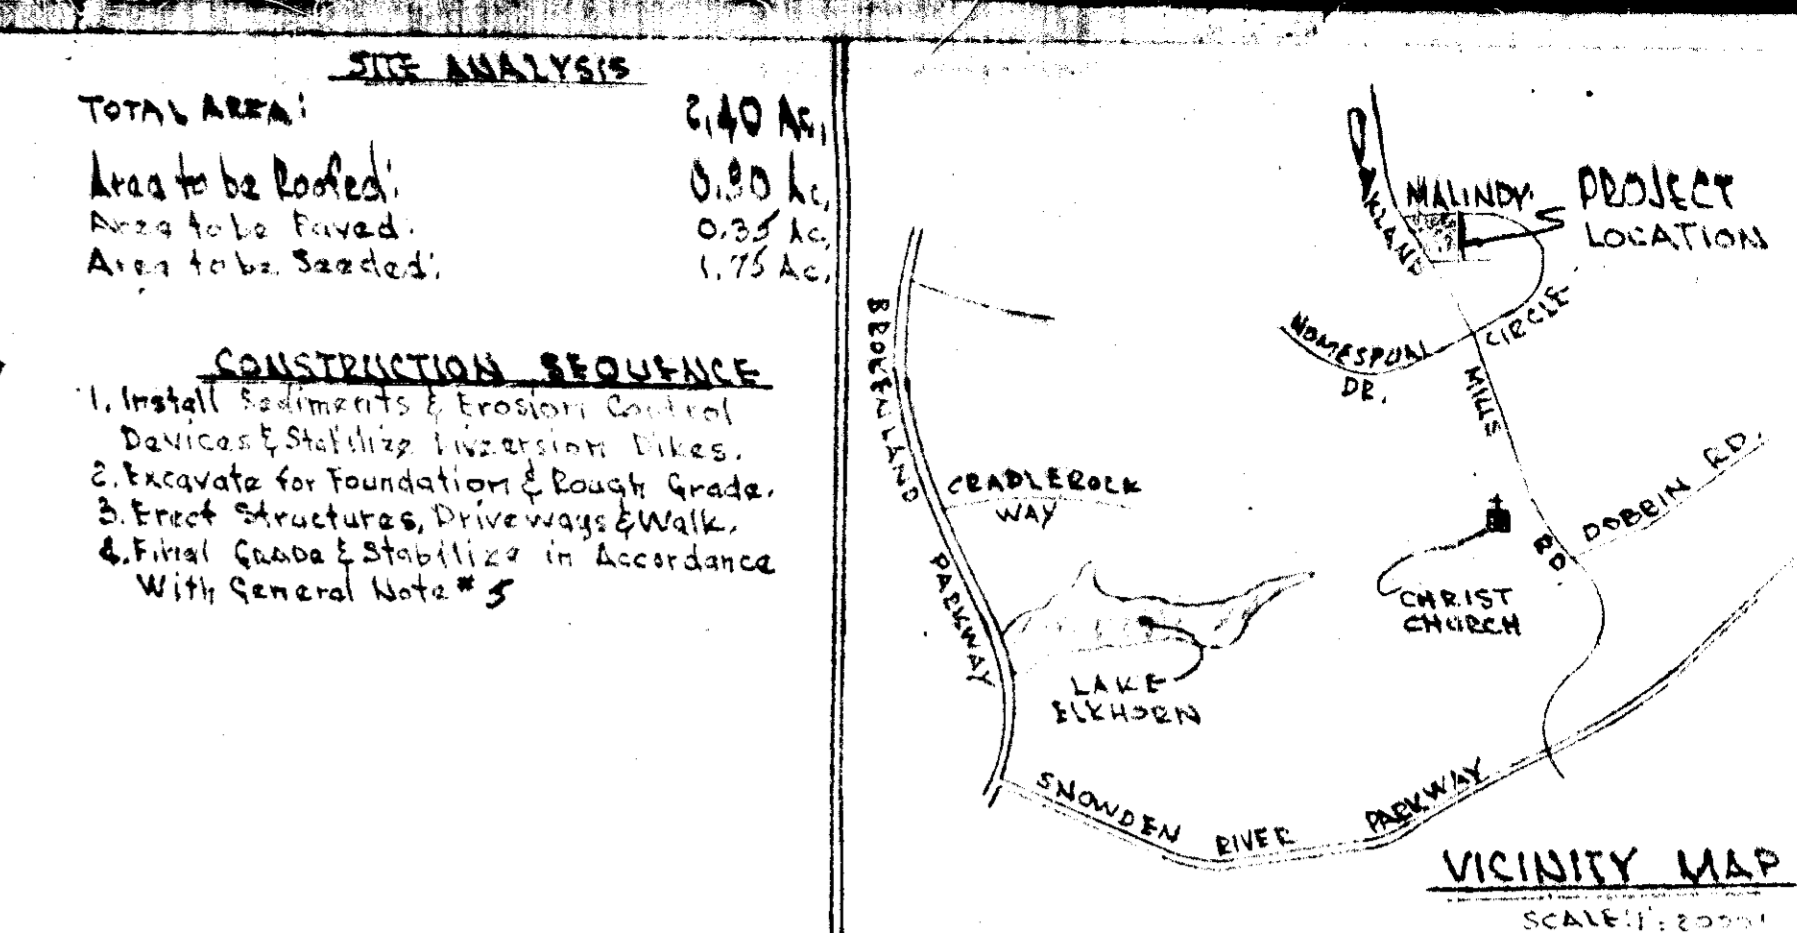 SITE ANALYSIS
TOTAL AREA: 2.40 Ac.
Area to be Roofed: 0.30 Ac.
Area to be Paved: 0.35 Ac.
Area to be Seeded: 1.75 Ac.
CONSTRUCTION SEQUENCE
1. Install Sediments & Erosion Control
Devices & Stabilize Diversion Dikes.
2. Excavate for Foundation & Rough Grade.
3. Erect Structures, Driveways & Walk.
4. Final Grade & Stabilize in Accordance
With General Note # 5
OAKLAND
MALINDY
PROJECT
LOCATION
HOMESPUN
DR.
CIRCLE
MILLS
RD
BROKENLAND
PARKWAY
CRADLEROCK
WAY
DOBBIN RD.
CHRIST
CHURCH
LAKE
ELKHORN
SNOWDEN RIVER PARKWAY
VICINITY MAP
SCALE: 1": 2000'